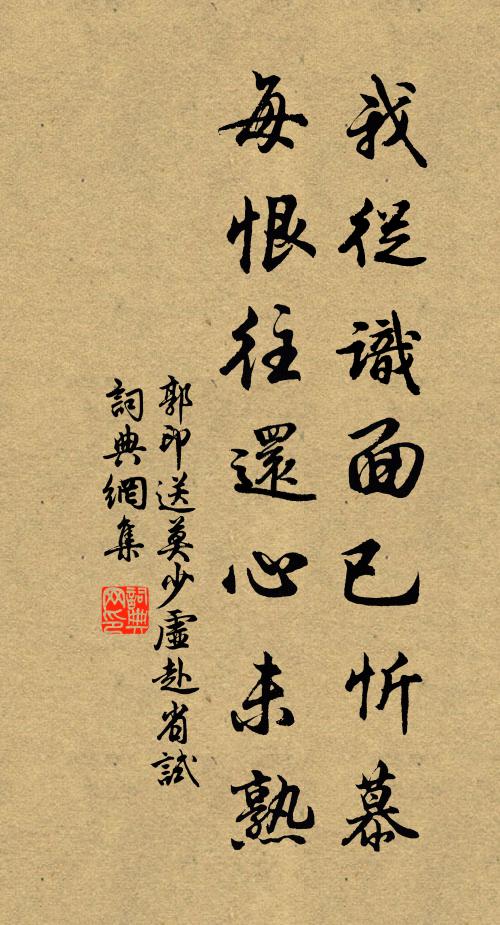 我從識面已忻慕
每恨往還心未熟
郭印送莫少虛赴省試
詞典網集
詞典网印